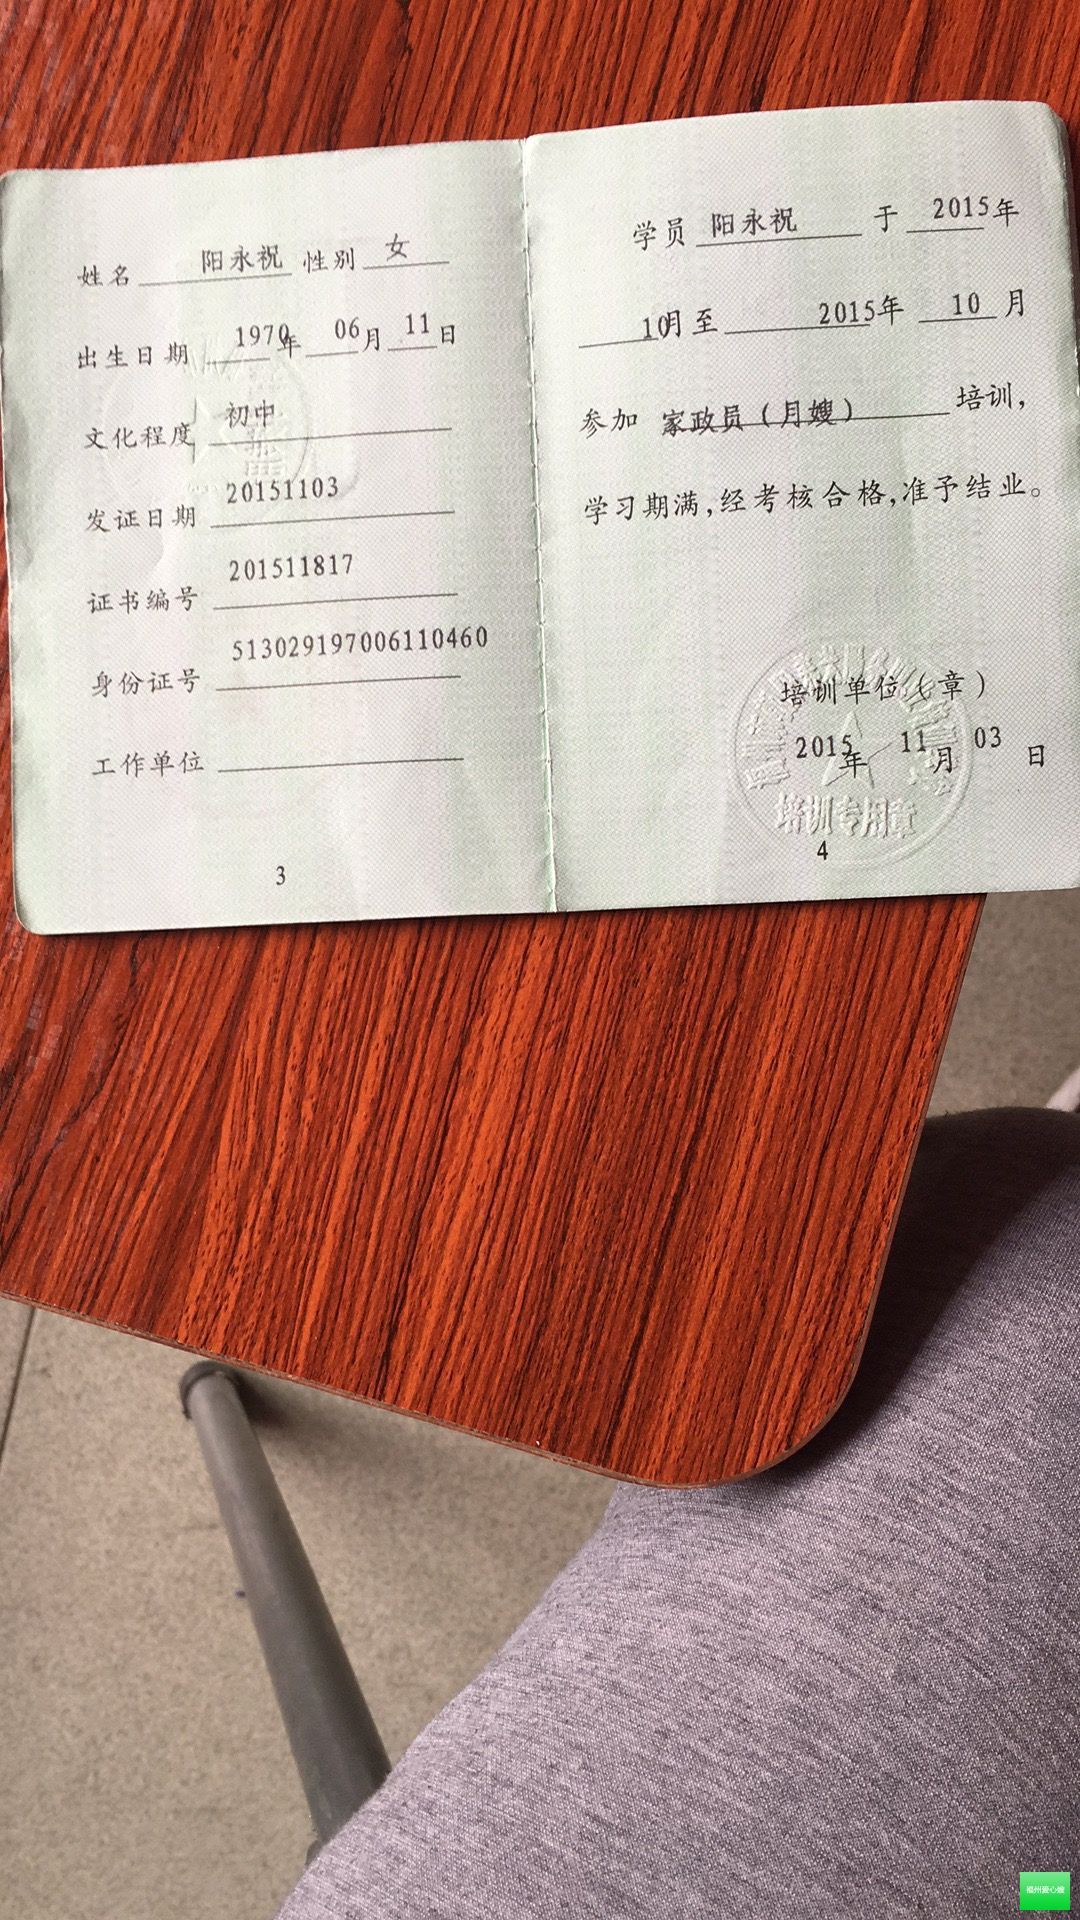 姓名 阳永祝 性别 女
出生日期 1970年 06月 11日
文化程度 初中
发证日期 20151103
证书编号 201511817
身份证号 513029197006110460
工作单位
3
学员 阳永祝 于 2015年
10月至 2015年 10月
参加 家政员（月嫂） 培训，
学习期满，经考核合格，准予结业。
培训单位（章）
2015年 11月 03日
培训专用章
4
福州爱心嫂